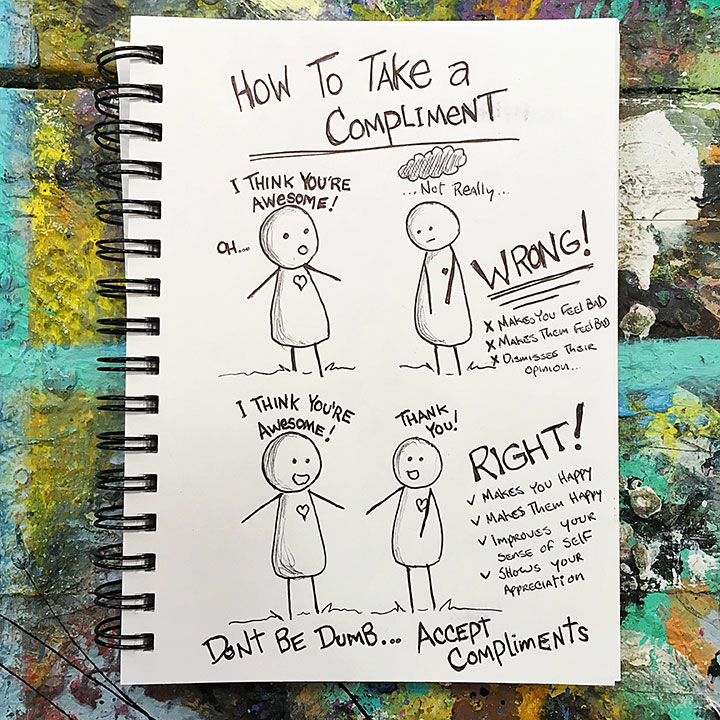 HOW TO TAKE a
COMPLIMENT
I THINK YOU'RE
AWESOME!
OH...
...NOT REALLY...
WRONG!
X MAKES YOU FEEL BAD
X MAKES THEM FEEL BAD
X DISMISSES THEIR
OPINION...
I THINK YOU'RE
AWESOME!
THANK
YOU!
RIGHT!
✓ MAKES YOU HAPPY
✓ MAKES THEM HAPPY
✓ IMPROVES YOUR
SENSE OF SELF
✓ SHOWS YOUR
APPRECIATION
DON'T BE DUMB... ACCEPT
COMPLIMENTS